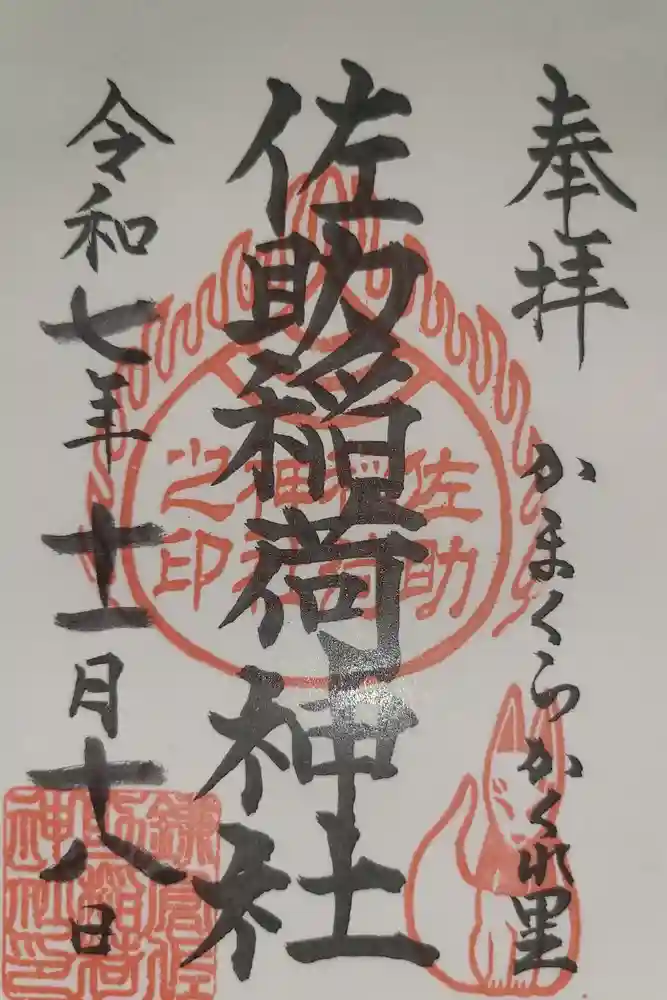 奉拝
かまくらかくれ里
佐助稲荷神社
令和七年十一月十八日
佐助稲荷神社之印
鎌倉佐助稲荷神社印